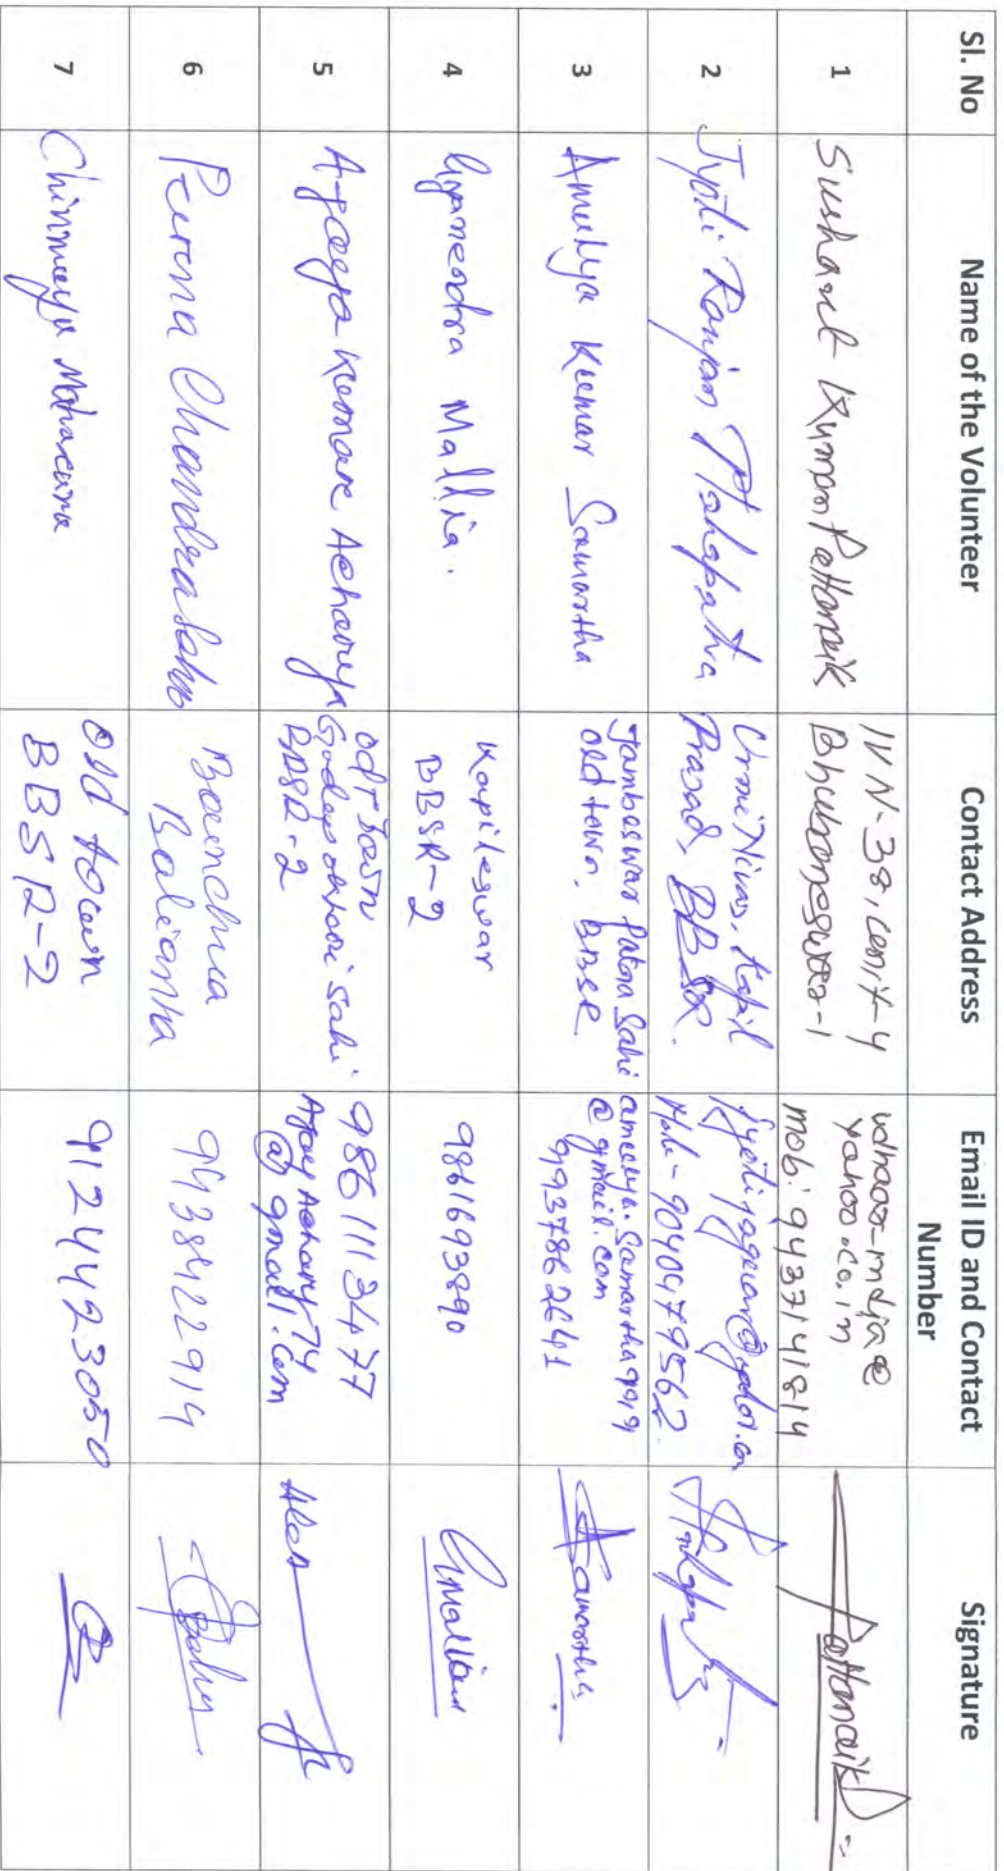 Sl. No Name of the Volunteer Contact Address Email ID and Contact Number Signature
1 Sushant Kumar Pattanaik IVN-38, Unit-4 Bhubaneswar-1 yahoo.co.in mob: 9437141814 Pattanaik
2 Jyoti Ranjan Mahapatra Urmi Nivas, Kapil Prasad, BBSR. Mob - 9040479562.
3 Amulya Kumar Samartha Jambeswar Patna Sahi old town, BBSR amulya.samartha9919 @gmail.com 9937862641 Samartha
4 Gyanendra Mallia. Kapileswar BBSR-2 9861693890 Gmallia
5 Ajaya Kumar Acharya old Town Sahi BBSR-2 9861113477 Ajay Achary74 @gmail.com
6 Purna Chandra Sahu Baenchua Balianta 9438422914 Sahu
7 Chinmaya Maharana old town BBSR-2 9124423050